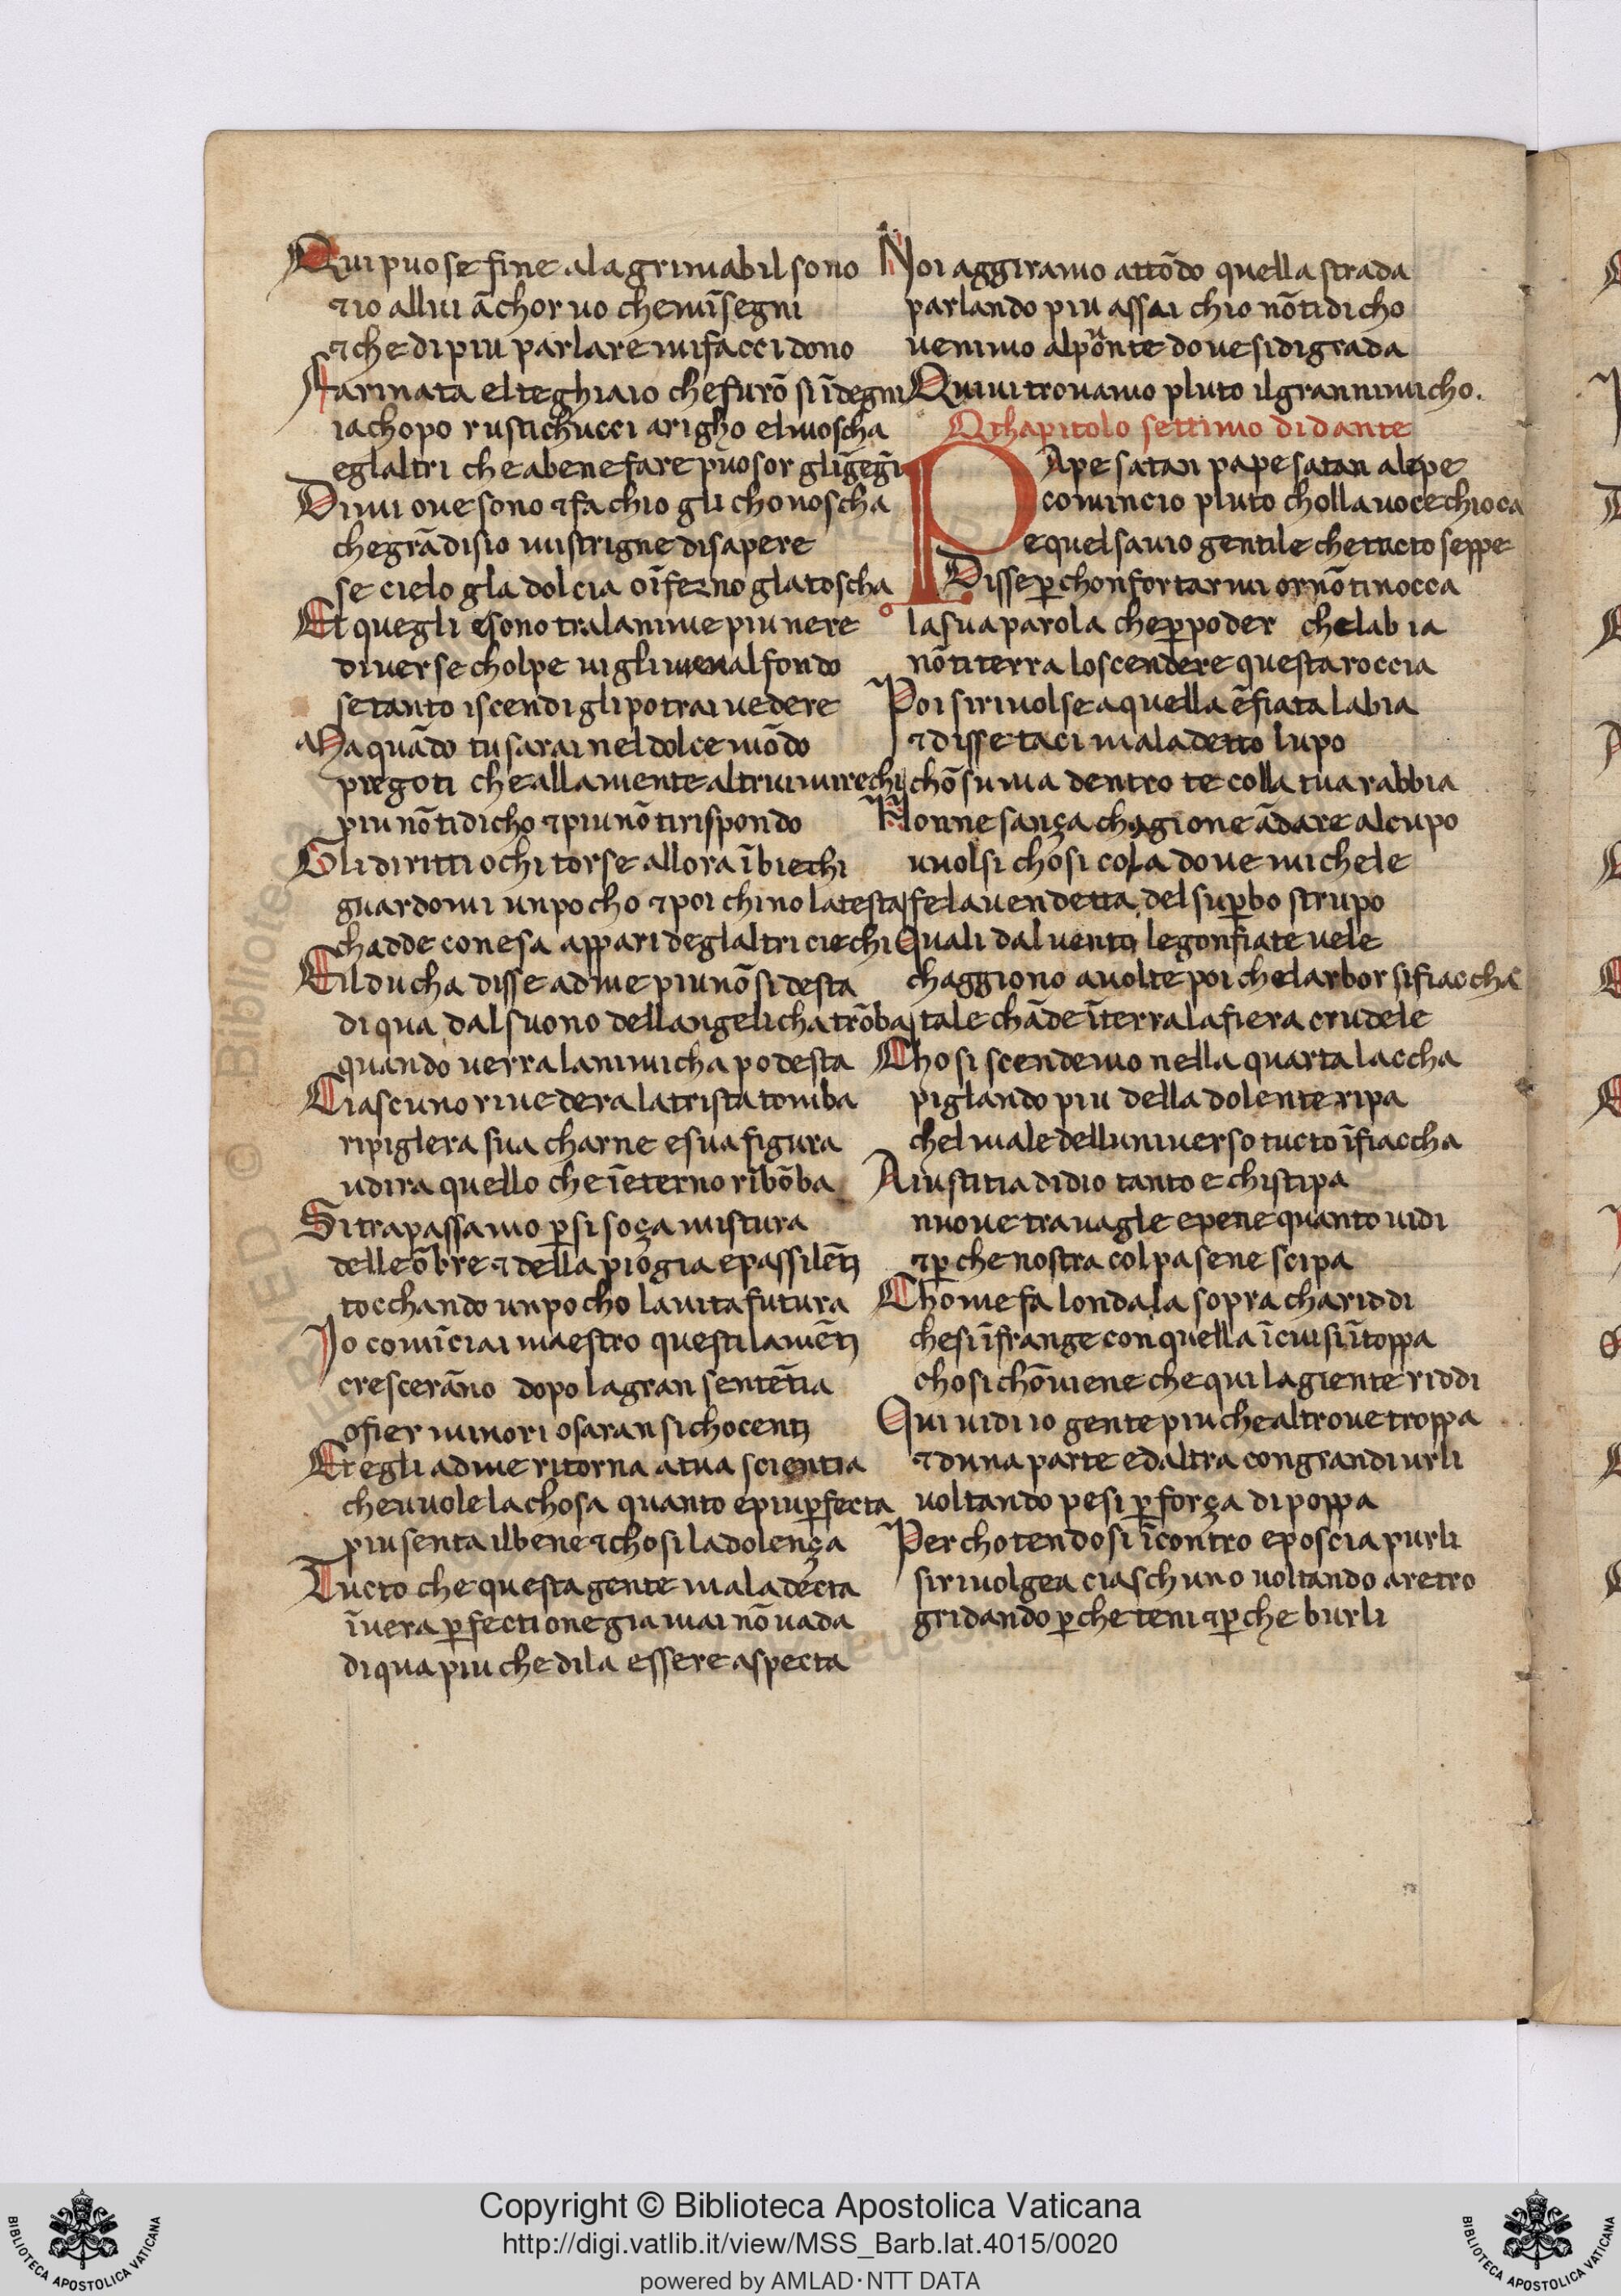 Qui puose fine alagrimabil sono
⁊ io allui ãchor uo chemĩsegni
⁊ che di piu parlare mi facci dono
Farinata el teghiaio che furõ si ĩdegni
iachopo rustichucci arigho el moscha
e glaltri che abene fare puosor gliĝegñi
Dimi oue sono ⁊ fa chio gli chonoscha
che grã disio mi strigne di sapere
se cielo gla dolcia o ĩferno gla toscha
Et quegli e sono tra lanime piu nere
diuerse cholpe ui gli menal fondo
se tanto iscendi gli potrai uedere
Ma quãdo tu sarai nel dolce mõdo
pregoti che alla mente altrui mi rechi
piu nõ ti dicho ⁊ piu nõ ti rispondo
Gli diritti ochi torse allora ĩ biechi
guardomi un pocho ⁊ poi chino la testa
chadde con esa appari deglaltri ciechi
El ducha disse ad me piu nõ si desta
di qua dal suono dellangelicha trõba
quando uerra la nimicha podesta
Ciascuno riuedera la trista tomba
ripiglera sua charne e sua figura
udira quello che ĩ eterno ribõba
Si trapassamo p̱ si soça mistura
delle õbre ⁊ della piogia e passi lẽti
tocchando un pocho la uita futura
Io comĩciai maestro questi lamẽti
crescerãno dopo la gran sentẽtia
o fier minori o saran si chocenti
Et egli ad me ritorna a tua scientia
che uuole la chosa quanto e piu p̱fecta
piu senta il bene ⁊ chosi la dolença
Tucto che questa gente maladecta
ĩ uera p̱fectione gia mai nõ uada
di qua piu che di la essere aspecta
Noi aggiramo attõdo quella strada
parlando piu assai chio nõ ti dicho
uenimo al põnte doue si digrada
Quiui trouamo pluto il gran nimicho.
Q chapitolo settimo di dante
PApe satan pape satan alepe
comincio pluto cholla uoce chioca
e quel sauio gentile che tucto seppe
Disse p̱ chonfortarmi or nõ ti nocca
la sua parola che p̱ poder che lab ia
nõ ti terra lo scendere questa roccia
Poi si riuolse a quella ẽfiata labia
⁊ disse taci maladetto lupo
chõsuma dentro te colla tua rabbia
Nonne sança chagione ãdare al cupo
uuolsi chosi cola doue michele
fe la uendetta del sup̱bo strupo
Quali dal uento le gonfiate uele
chaggiono auolte poi che larbor si fiaccha
tale chãde ĩ terra la fiera crudele
Chosi scendemo nella quarta laccha
piglando piu della dolente ripa
chel male delluniuerso tucto ĩfiaccha
A iustitia didio tanto e chi stipa
nuoue trauagle e pene quanto uidi
⁊ p̱ che nostra colpa sene scipa
Chome fa londa la sopra chariddi
che si ĩfrange con quella ĩ cui si ĩtoppa
chosi chõuiene che qui la giente riddi
Qui uidi io gente piu che altroue troppa
⁊ duna parte e daltra con grandi urli
uoltando pesi p̱ força di poppa
Perchotendosi ĩcontro e poscia purli
si riuolgea ciaschuno uoltando a retro
gridando p̱che teni ⁊ p̱che burli
Copyright © Biblioteca Apostolica Vaticana
http://digi.vatlib.it/view/MSS_Barb.lat.4015/0020
powered by AMLAD·NTT DATA
BIBLIOTECA APOSTOLICA VATICANA
BIBLIOTECA APOSTOLICA VATICANA